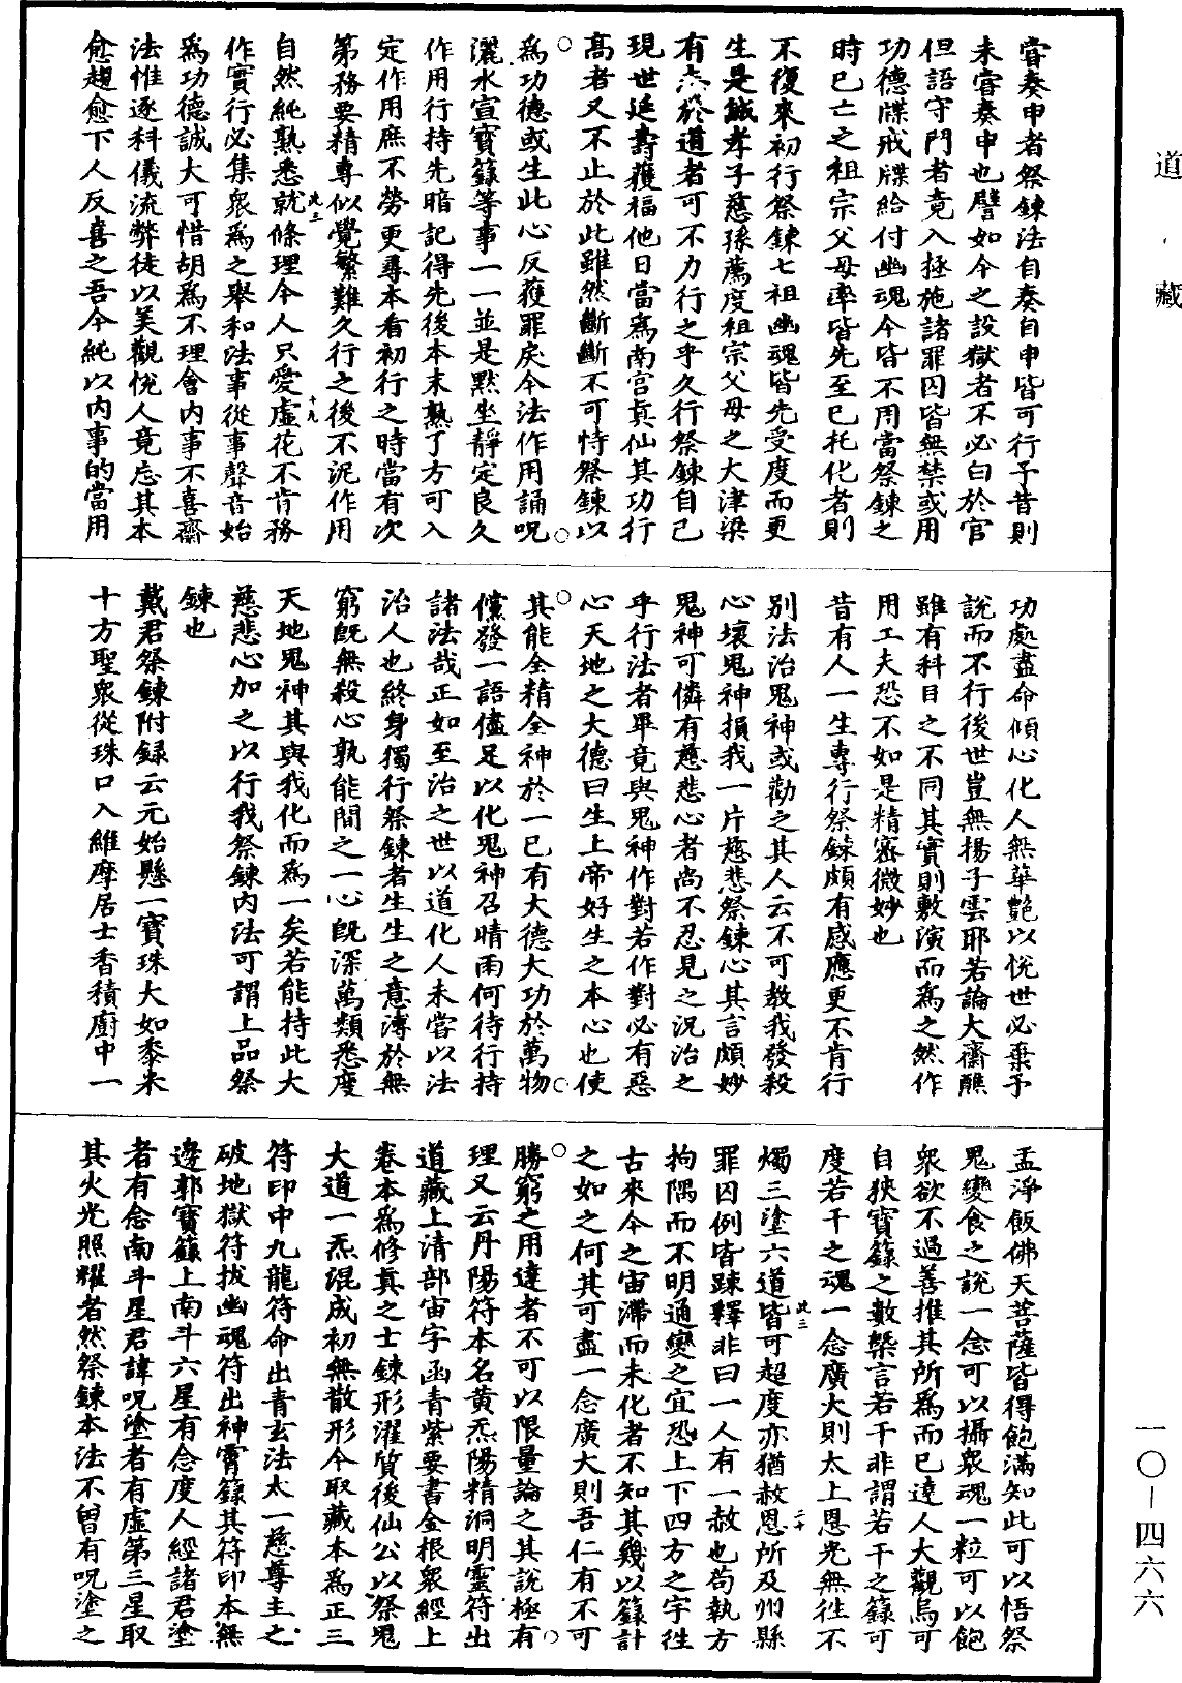 道藏
嘗奏申者祭鍊法自奏自申皆可行予昔則
未嘗奏申也譬如今之設獄者不必白於官
但語守門者竟入拯施諸罪囚皆無禁或用
功德牒戒牒給付幽魂今皆不用當祭鍊之
時已亡之祖宗父母率皆先至已托化者則
不復來初行祭鍊七祖幽魂皆先受度而更
生是誠孝子慈孫薦度祖宗父母之大津梁
有志於道者可不力行之乎久行祭鍊自己
現世延壽獲福他日當為南宮真仙其功行
高者又不止於此雖然斷斷不可恃祭鍊以
為功德或生此心反獲罪戾今法作用誦呪
灑水宣寶籙等事一一並是默坐靜定良久
作用行持先暗記得先後本末熟了方可入
定作用庶不勞更尋本看初行之時當有次
第務要精專似覺繁難久行之後不泥作用
自然純熟悉就條理今人只愛虛花不肯務
作實行必集衆為之舉和法事從事聲音始
為功德誠大可惜胡為不理會內事不喜齋
法惟逐科儀流弊徒以美觀悅人竟忘其本
愈趨愈下人反喜之吾今純以內事的當用
功處盡命傾心化人無華艷以悅世必棄予
說而不行後世豈無揚子雲耶若論大齋醮
雖有科目之不同其實則敷演而為之然作
用工夫恐不如是精審微妙也
昔有人一生專行祭鍊頗有感應更不肯行
別法治鬼神或勸之其人云不可教我發殺
心壞鬼神損我一片慈悲祭鍊心其言頗妙
鬼神可憐有慈悲心者尚不忍見之況治之
乎行法者畢竟與鬼神作對若作對必有惡
心天地之大德曰生上帝好生之本心也使
其能全精全神於一己有大德大功於萬物
儻發一語儘足以化鬼神召晴雨何待行持
諸法哉正如至治之世以道化人未嘗以法
治人也終身獨行祭鍊者生生之意溥於無
窮既無殺心孰能間之一心既深萬類悉度
天地鬼神其與我化而為一矣若能持此大
慈悲心加之以行我祭鍊內法可謂上品祭
鍊也
戴君祭鍊附錄云元始懸一寶珠大如黍米
十方聖衆從珠口入維摩居士香積廚中一
盂淨飯佛天菩薩皆得飽滿知此可以悟祭
鬼變食之說一念可以攝衆魂一粒可以飽
衆欲不過善推其所為而已達人大觀烏可
自狹寶籙之數槩言若干非謂若干之籙可
度若干之魂一念廣大則太上恩光無往不
燭三塗六道皆可超度亦猶赦恩所及州縣
罪囚例皆踈釋非曰一人有一赦也苟執方
拘隅而不明通變之宜恐上下四方之宇往
古來今之宙滯而未化者不知其幾以籙計
之如之何其可盡一念廣大則吾仁有不可
勝窮之用達者不可以限量論之其說極有
理又云丹陽符本名黃炁陽精洞明靈符出
道藏上清部宙字函青紫要書金根衆經上
卷本為修真之士鍊形濯質後仙公以祭鬼
大道一炁混成初無散形今取藏本為正三
符印中九龍符命出青玄法太一慈尊主之
破地獄符拔幽魂符出神霄籙其符印本無
邊郭寶籙上南斗六星有念度人經諸君塗
者有念南斗星君諱呪塗者有虛第三星取
其火光照耀者然祭鍊本法不曾有呪塗之
一〇-四六六